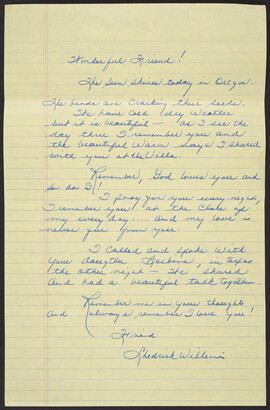 Wonderful Friend!
The Sun shines today in Oregon.
The birds are cracking their seeds.
We have Cold dry Weather
but it is beautiful - as I see the
day thru I remember you and
the beautiful Warm days I shared
with you at the
Remember, God loves you and
so do I!
I pray for you every night,
I remember you at the Close of
my every day.... and my love is
never far from you.
I Called and spoke With
your daughter Barbara, in Texas
the other night - We shared
and had a beautiful talk together.
Remember me in your thoughts,
and always remember I love you!
Friend
Shedrick